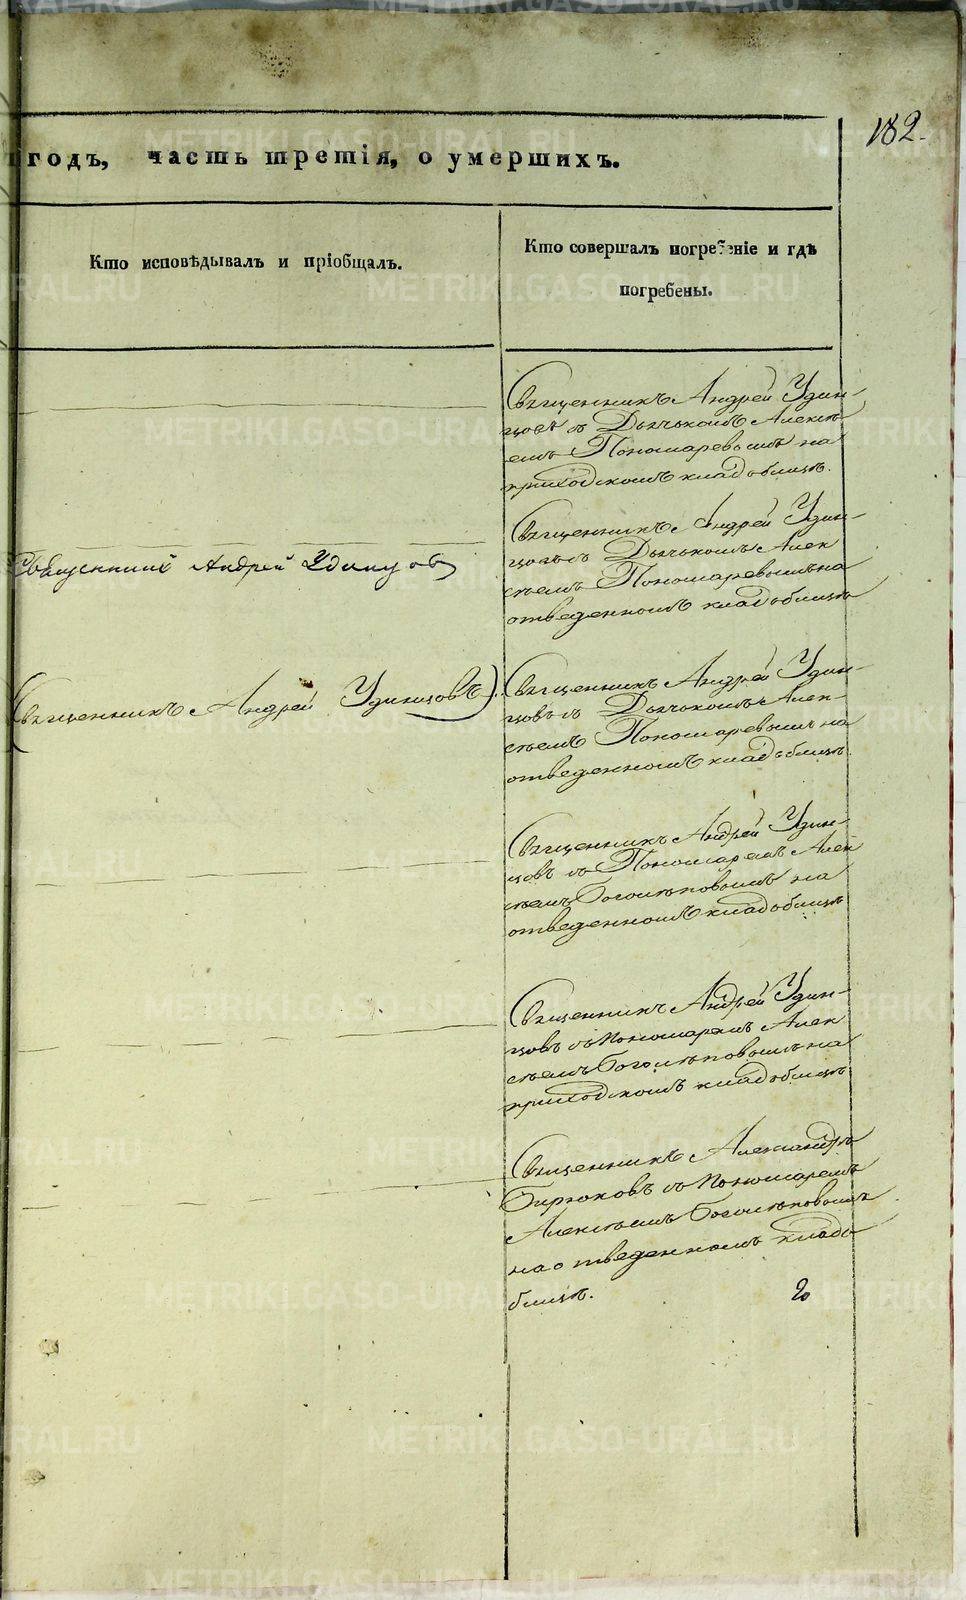 182.
годъ, часть третія, о умершихъ.
Кто исповѣдывалъ и пріобщалъ.
Кто совершалъ погребеніе и гдѣ
погребены.
Священникъ Андрей Удин-
цовъ съ Дьячкомъ Алексѣ
емъ Пономаревымъ на
приходскомъ кладобищѣ.
Священникъ Андрей Удинцовъ
Священникъ Андрей Удин-
цовъ съ Дьячкомъ Алек
сѣемъ Пономаревымъ на
отведенномъ кладобищѣ
Священникъ Андрей Удинцовъ).
Священникъ Андрей Удин-
цовъ съ Дьячкомъ Алек-
сѣемъ Пономаревымъ на
отведенномъ кладобищѣ.
Священникъ Андрей Удин-
цовъ съ Пономаремъ Алек
сѣемъ Боголѣповымъ на
отведенномъ кладобищѣ
Священникъ Андрей Удин-
цовъ съ пономаремъ Алек
сѣемъ Боголѣповымъ на
приходскомъ кладобищѣ
Священникъ Александръ
Бирюковъ съ пономаремъ
Алексѣемъ Боголѣповымъ
на отведенномъ кладо
бищѣ.
METRIKI.GASO-URAL.RU